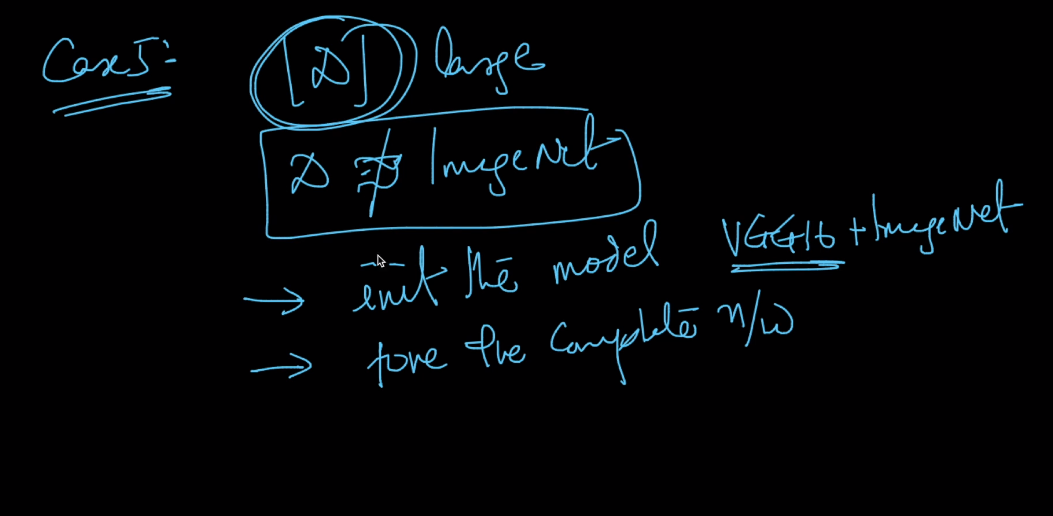 Case 5: [D] large
D ≠ ImageNet
→ init the model VGG16 + ImageNet
→ tune the complete n/w